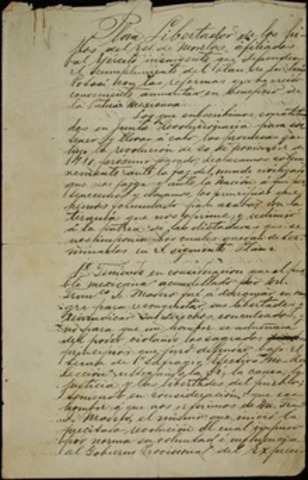 Plan Libertador de los hi-
jos del Est. de Morelos, afiliados
al Ejército insurgente que defienden
el cumplimiento del Plan de San Luis
Potosí con las reformas que ha creido
conveniente aumentar en beneficio de
la Patria Mexicana.
Los que subscribimos, constitui-
dos en Junta Revolucionaria, para sos-
tener y llevar á cabo las promesas que
hizo la revolución de 20 de Noviembre de
1910, próximo pasado, declaramos solem-
nemente ante la faz del mundo civilizado
que nos juzga y ante la Nación á que
pertenecemos y amamos, los principios que
hemos formulado para acabar con la
tiranía que nos oprime y redimir
á la patria de las dictaduras que se
nos imponen las cuales quedan deter-
minadas en el siguiente Plan:
1º Teniendo en consideración que el pue-
blo mexicano acaudillado por Dn.
Franco. I. Madero fué á derramar su san-
gre para reconquistar sus libertades y
reivindicar sus derechos conculcados,
y no para que un hombre se adueñara
del poder violando los sagrados
principios que juró defender bajo el
lema de "Sufragio Efectivo", "No Re-
elección," ultrajando la fé, la causa, la
justicia y las libertades del pueblo;
teniendo en consideración: que ese
hombre á que nos referimos es Dn. Fran.
I. Madero, el mismo que inició la
precitada revolución el cual impuso
por norma su voluntad é influencia
al Gobierno Provisional del Ex Presi-